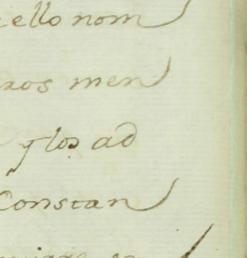 ello nom
ros men
y los ad
Constan